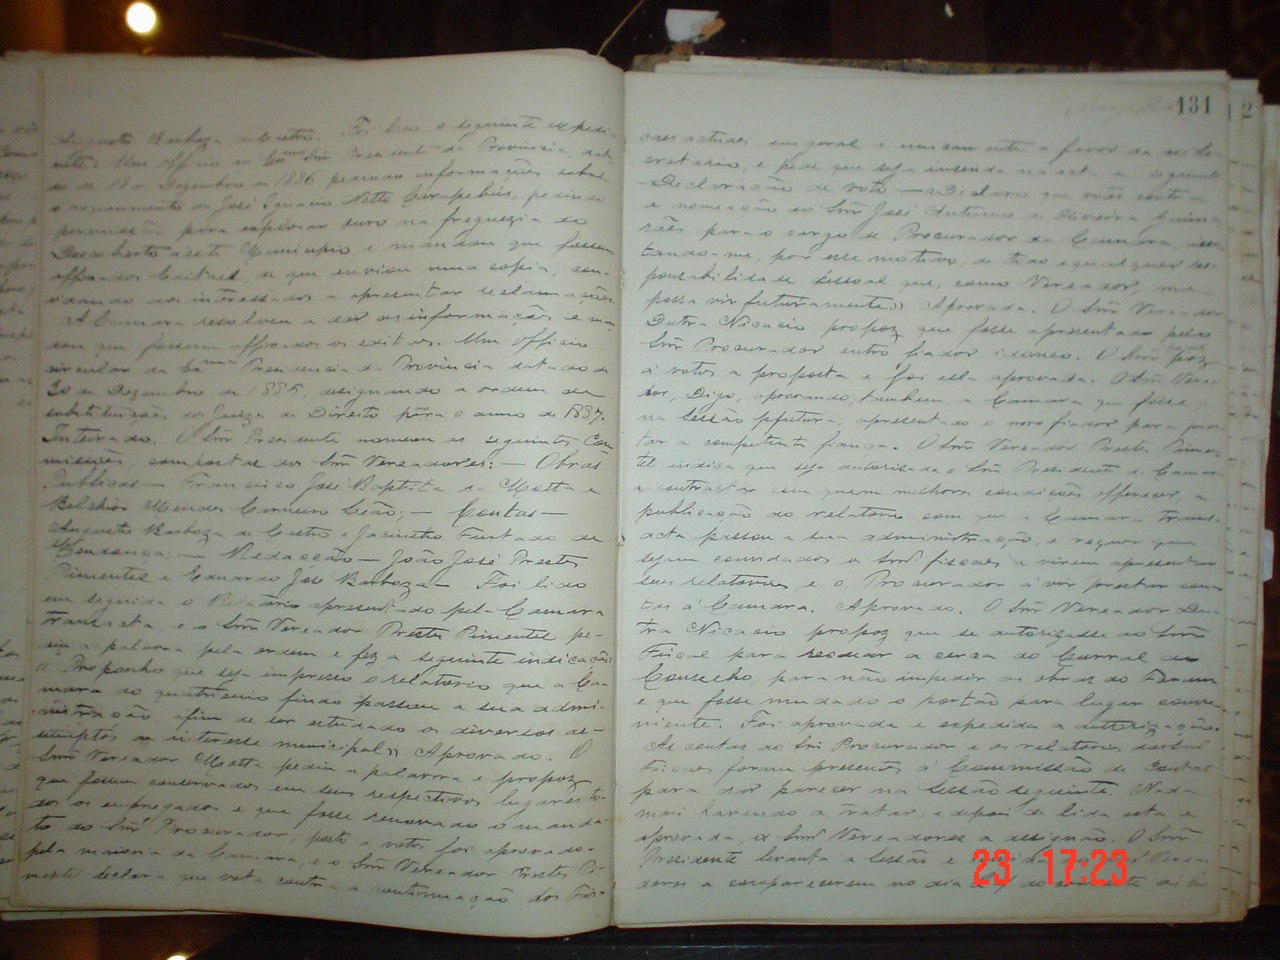 Augusto Barboza e Castro. Foi lido o seguinte expedi-
ente: Um officio do Exmo Snr Presidente da Provincia, dat-
do de 18 de Dezembro de 1886 pedindo informações sobre
o requerimento de José Ignacio Netto Carapebús, pedindo
permissão para explorar ouro na freguezia do
Descoberto deste Municipio, e mandou que fossem
affixados Editaes, de que enviou uma copia, con-
vidando aos interessados a apresentar reclamações.
A Camara resolveu a dar as informações e man-
dou que fossem affixados os editaes. Um officio
circular da Exma Presidencia da Provincia datado de
de Dezembro de 1886, designando a ordem de
substituição, do Juizo de Direito para o anno de 1887.
Inteirado. O Snr Presidente nomeou as seguintes Com-
missões, compostas dos Snrs Vereadores: — Obras
Publicas — Francisco José Baptista da Motta e
Belchior Mendes Carneiro Leão; — Contas —
Augusto Barboza de Castro e Jacintho Furtado de
Mendonça; — Redacção — João José Prestes
Pimentel e Eduardo José Barboza — Foi lido
em seguida o Relatorio apresentado pela Camara
transacta, e o Snr Vereador Prestes Pimentel pe-
diu a palavra pela ordem e fez a seguinte indicação
"Proponho que seja impresso o relatorio que a Ca-
mara do quatrienio findo passou a sua admi-
nistração, afim de ser estudado os diversos as-
sumptos de interesse municipal" Approvado. O
Snr Vereador Motta pediu a palavra e propoz
que fossem conservados em seus respectivos lugares to-
dos os empregados e que fosse renovado o manda-
to do Snr Procurador, posto a votos foi approvado-
pela maioria da Camara, e o Snr Vereador Prestes Pi-
mentel declara que vota contra a continuação dos Fis-
131
caes actuaes em geral e unicamente a favor da do Se-
cretario, e pede que seja inserida na acta a seguinte
— Declaração de voto — "Declaro que votei contra
a nomeação do Snr José Antonio de Oliveira Guima-
rães para o cargo de Procurador da Camara, isen-
tando-me, por esse motivo, de toda e qualquer res-
ponsabilidade pessoal que, como Vereador, me
possa vir futuramente" Aprovada. O Snr Vereador
Dutra Nicacio propoz que fosse apresentado pelo
Snr Procurador outro fiador idoneo. O Snr poz
a votos a proposta e foi ella aprovada. O Snr Verea-
dor, Digo, aprovando, tambem a Camara que fosse,
na Sessão futura, apresentado o novo fiador para pres-
tar a competente fiança. O Snr Vereador Prestes Pimen-
tel indica que seja autorisado o Snr Presidente da Camara
a contractar com quem melhores condições offerecer, a
publicação do relatorio com que a Camara trans-
acta passou a sua administração, e requer que
sejam convidados os Snrs fiscaes a virem apresentar
seus relatorios, e o Procurador a vir prestar con-
tas á Camara. Aprovado. O Snr Vereador Du-
tra Nicacio propoz que se autorizasse ao Snr
Fiscal para recuar a cerca do Curral do
Conselho para não impedir as obras do Forum
e que fosse mudado o portão para lugar conve-
niente. Foi aprovada e expedida a autorização.
As contas do Snr Procurador e os relatorios dos Snrs
fiscaes foram presentes á Commissão de Contas
para dar parecer na Sessão seguinte. Nada
mais havendo a tratar, e depois de lida esta e
aprovada, os Snrs Vereadores a assignão. O Snr
Presidente levanta a Sessão e Verea-
dores a comparecerem no dia do corrente ás
23 17:23